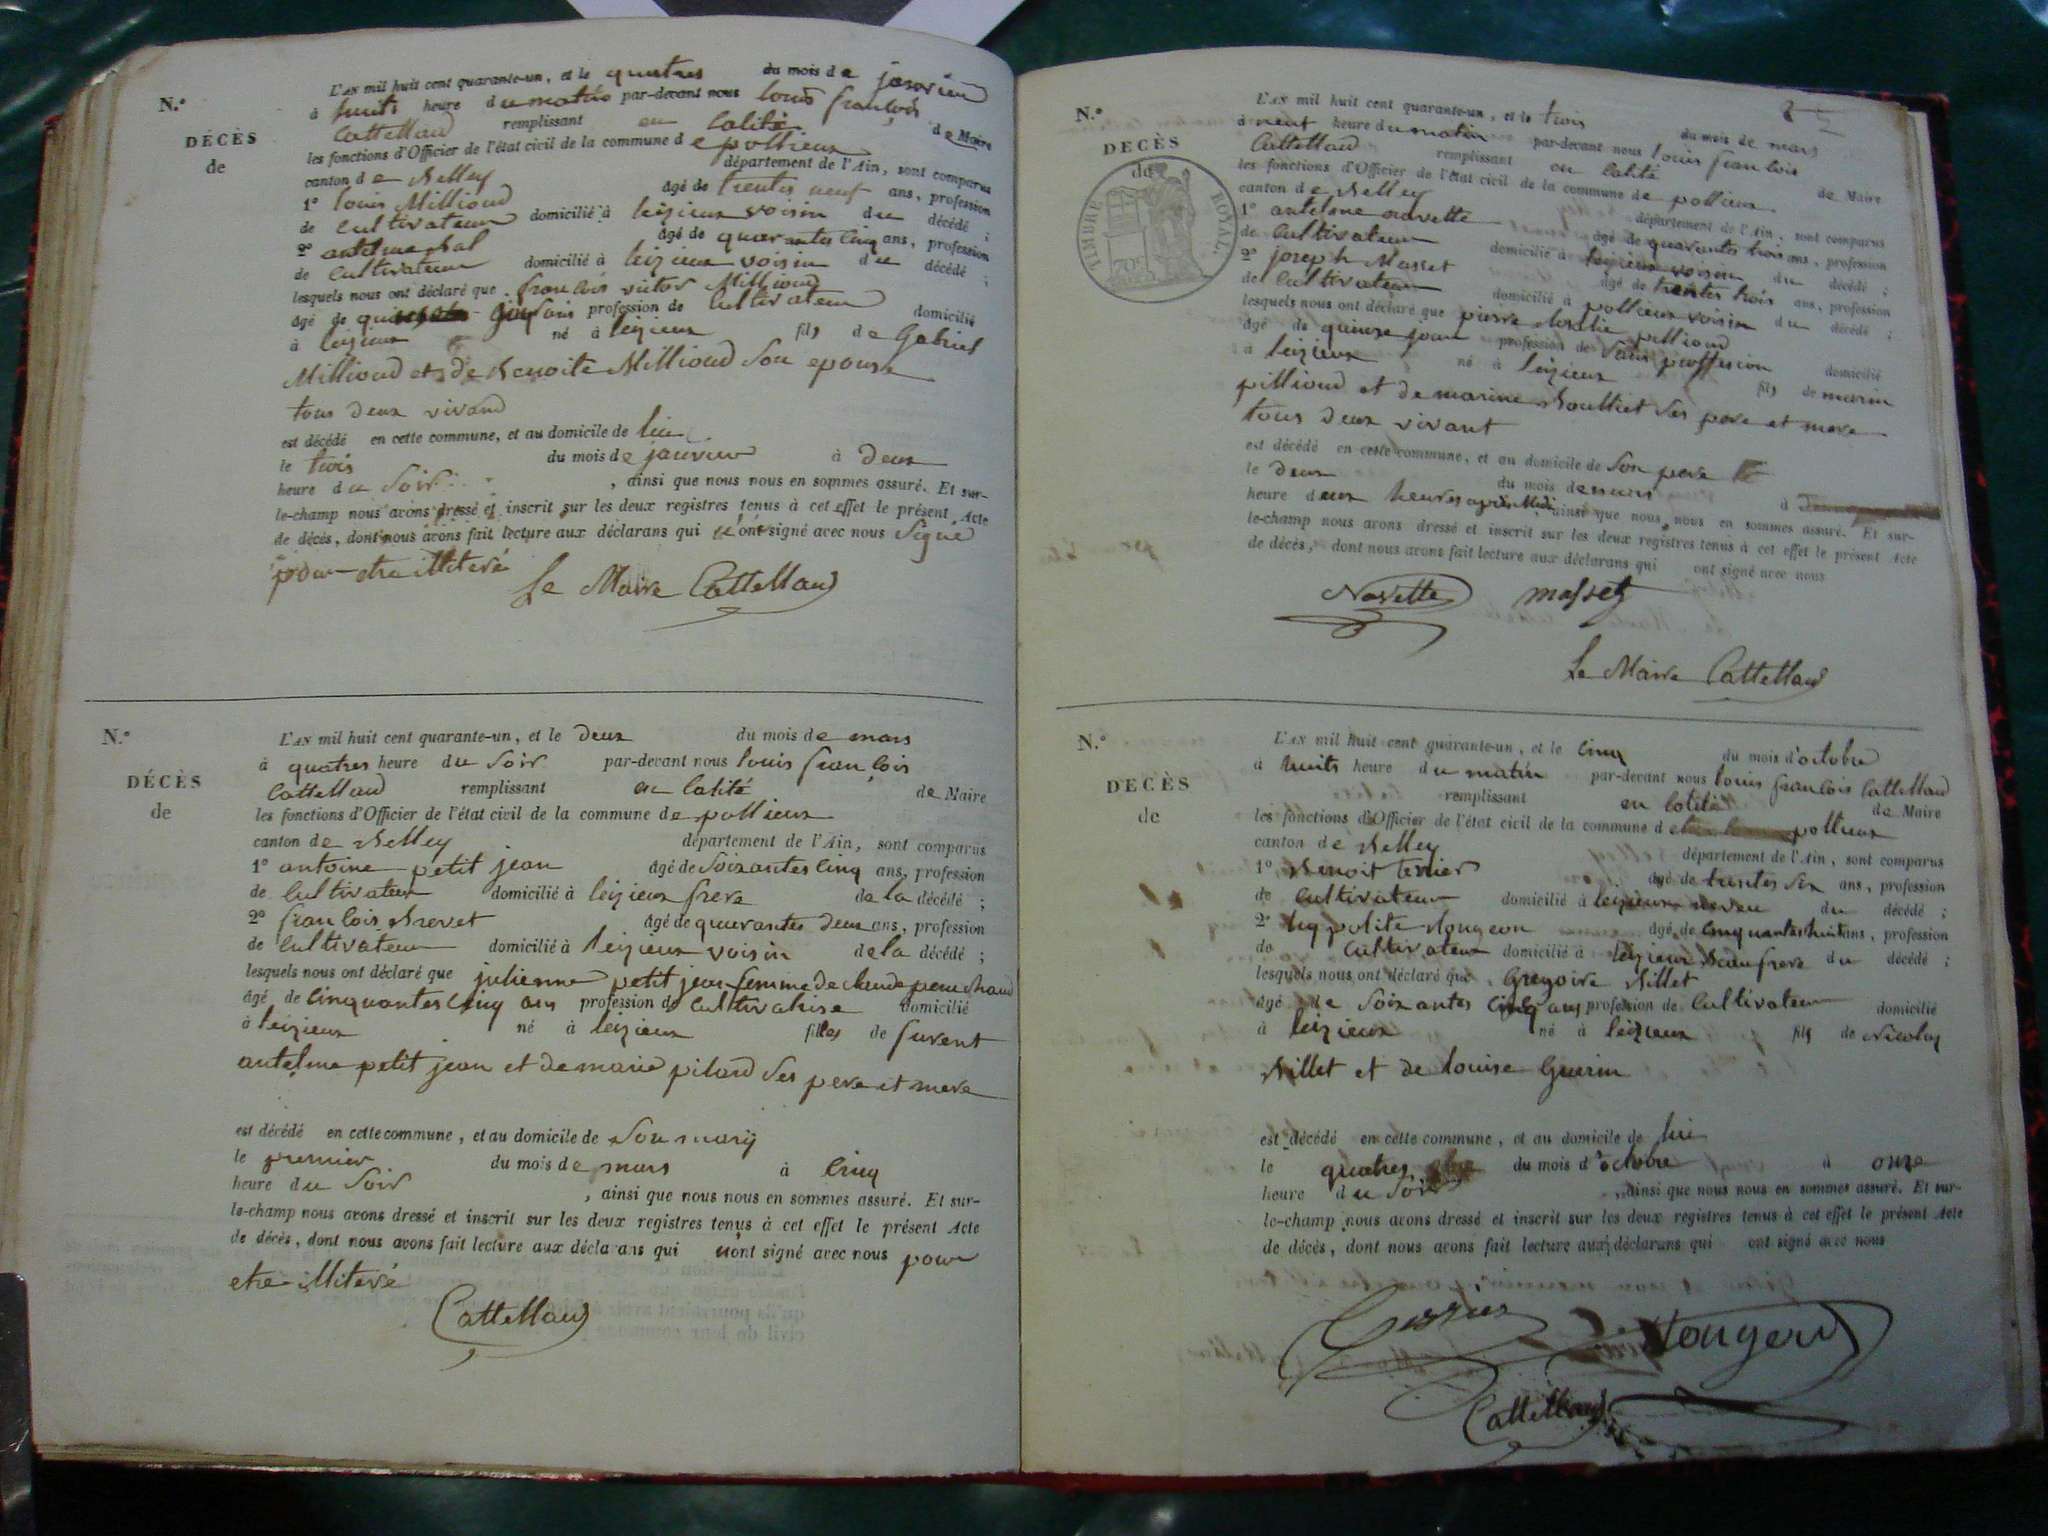 N.o
DÉCÈS
de
L'AN mil huit cent quarante-un, et le quatres du mois de janvier
à huits heure du matin par-devant nous louis françois
Cattelland remplissant en calité de Maire
les fonctions d'Officier de l'état civil de la commune de pollieux
canton de Belley département de l'Ain, sont comparus
1o louis Millioud âgé de trentes neuf ans, profession
de cultivateur domicilié à leizieux voisin du décédé ;
2o antelme bal âgé de quarantes cinq ans, profession
de cultivateur domicilié à leizieux voisin du décédé ;
lesquels nous ont déclaré que francois victor Millioud
âgé de ans profession de cultivateur domicilié
à leizieux né à leizieux fils de Gabriel
Millioud et de Benoite Millioud son epouse
tous deux vivand
est décédé en cette commune, et au domicile de lui
le trois du mois de janvier à deux
heure du soir , ainsi que nous nous en sommes assuré. Et sur-
le-champ nous avons dressé et inscrit sur les deux registres tenus à cet effet le présent Acte
de décès, dont nous avons fait lecture aux déclarans qui n'ont signé avec nous signé
pour etre illiteré
Le Maire Cattelland
N.o
DÉCÈS
de
L'AN mil huit cent quarante-un, et le deux du mois de mars
à quatres heure du soir par-devant nous louis francois
Cattelland remplissant en calité de Maire
les fonctions d'Officier de l'état civil de la commune de pollieux
canton de Belley département de l'Ain, sont comparus
1o antoine petit jean âgé de soixantes cinq ans, profession
de cultivateur domicilié à leizieux frere de la décédé ;
2o francois Brevet âgé de quarantes deux ans, profession
de cultivateur domicilié à leizieux voisin de la décédé ;
lesquels nous ont déclaré que julienne petit jean femme de claude peuchaud
âgé de cinquantes cinq ans profession de cultivatrise domicilié
à leizieux né à leizieux filles de furent
antelme petit jean et de marie pilard ses pere et mere
est décédé en cette commune, et au domicile de son mary
le premier du mois de mars à cinq
heure du soir , ainsi que nous nous en sommes assuré. Et sur-
le-champ nous avons dressé et inscrit sur les deux registres tenus à cet effet le présent Acte
de décès, dont nous avons fait lecture aux déclarans qui n'ont signé avec nous pour
etre illiteré
Cattelland
2
N.o
DÉCÈS
de
TIMBRE ROYAL.
L'AN mil huit cent quarante-un, et le trois du mois de mars
à neuf heure du matin par-devant nous louis francois
Cattelland remplissant en calité de Maire
les fonctions d'Officier de l'état civil de la commune de pollieux
canton de Belley département de l'Ain, sont comparus
1o antelme navette âgé de quarantes trois ans, profession
de cultivateur domicilié à leizieux voisin du décédé ;
2o joseph Masset âgé de trentes trois ans, profession
de cultivateur domicilié à pollieux voisin du décédé ;
lesquels nous ont déclaré que pierre pillioud
âgé de quinze jour profession de sans proffesion domicilié
à leizieux né à leizieux fils de marin
pillioud et de marine Boulliet ses pere et mere
tous deux vivant
est décédé en cette commune, et au domicile de son pere
le deux du mois de mars à
heure deux heures apres Midi ainsi que nous nous en sommes assuré. Et sur-
le-champ nous avons dressé et inscrit sur les deux registres tenus à cet effet le présent Acte
de décès, dont nous avons fait lecture aux déclarans qui ont signé avec nous
Navette masset
Le Maire Cattelland
N.o
DÉCÈS
de
L'AN mil huit cent quarante-un, et le cinq du mois d'octobre
à huits heure du matin par-devant nous louis francois Cattelland
remplissant en calité de Maire
les fonctions d'Officier de l'état civil de la commune de pollieux
canton de Belley département de l'Ain, sont comparus
1o Benoit terrier âgé de trentes six ans, profession
de cultivateur domicilié à leizieux neveu du décédé ;
2o hyppolite Nougeon âgé de cinquantes huit ans, profession
de cultivateur domicilié à leizieux beaufrere du décédé ;
lesquels nous ont déclaré que Gregoire Billet
âgé de soixantes cinq ans profession de cultivateur domicilié
à leizieux né à leizieux fils de Nicolas
Billet et de louise Guerin
est décédé en cette commune, et au domicile de lui
le quatres du mois d'octobre à onze
heure du soir , ainsi que nous nous en sommes assuré. Et sur-
le-champ nous avons dressé et inscrit sur les deux registres tenus à cet effet le présent Acte
de décès, dont nous avons fait lecture aux déclarans qui ont signé avec nous
Cattelland